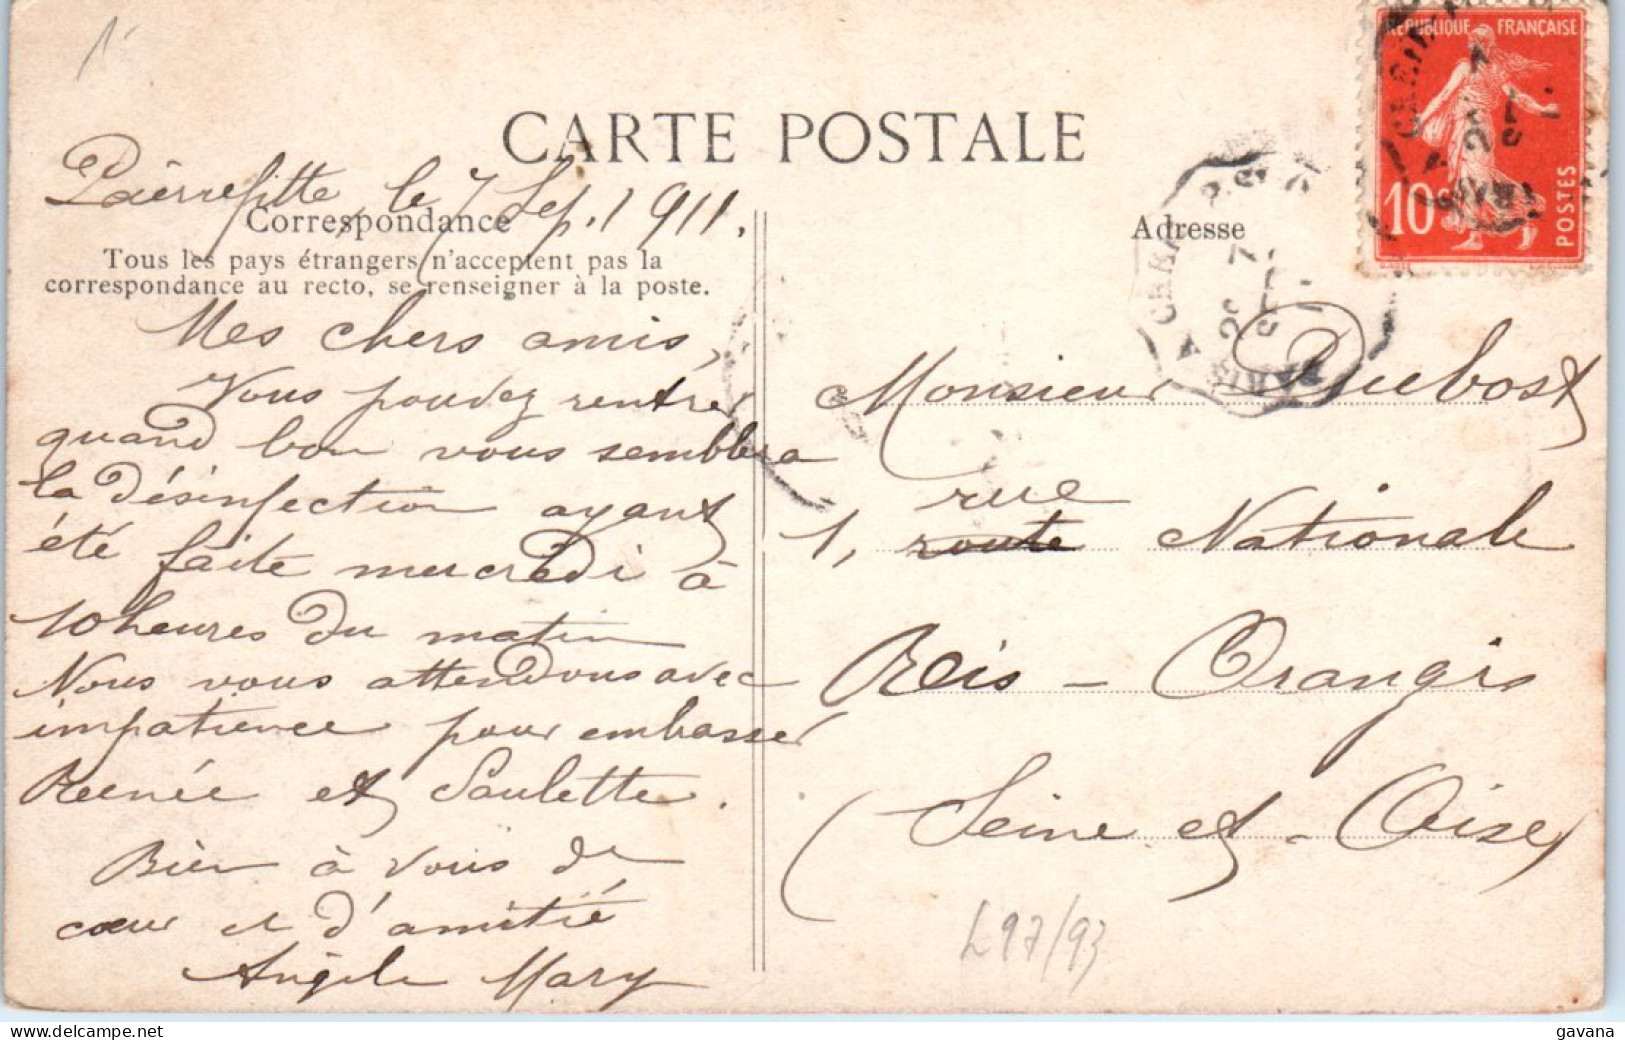 1-
CARTE POSTALE
RÉPUBLIQUE FRANÇAISE
10 c
POSTES
Pierrefitte, le 7 Sep. 1911.
Correspondance
Tous les pays étrangers n'acceptent pas la
correspondance au recto, se renseigner à la poste.
Mes chers amis,
Vous pouvez rentrer
quand bon vous semblera
la désinfection ayant
été faite mercredi à
10 heures du matin
Nous vous attendons avec
impatience pour embasser
Renée et Paulette.
Bien à vous de
cœur et d'amitié
Angèle Mary
Adresse
PARIS
20
7
Monsieur Dubost
rue
1, route Nationale
Reis - Orangis
(Seine et - Oise)
L97/93
gavana